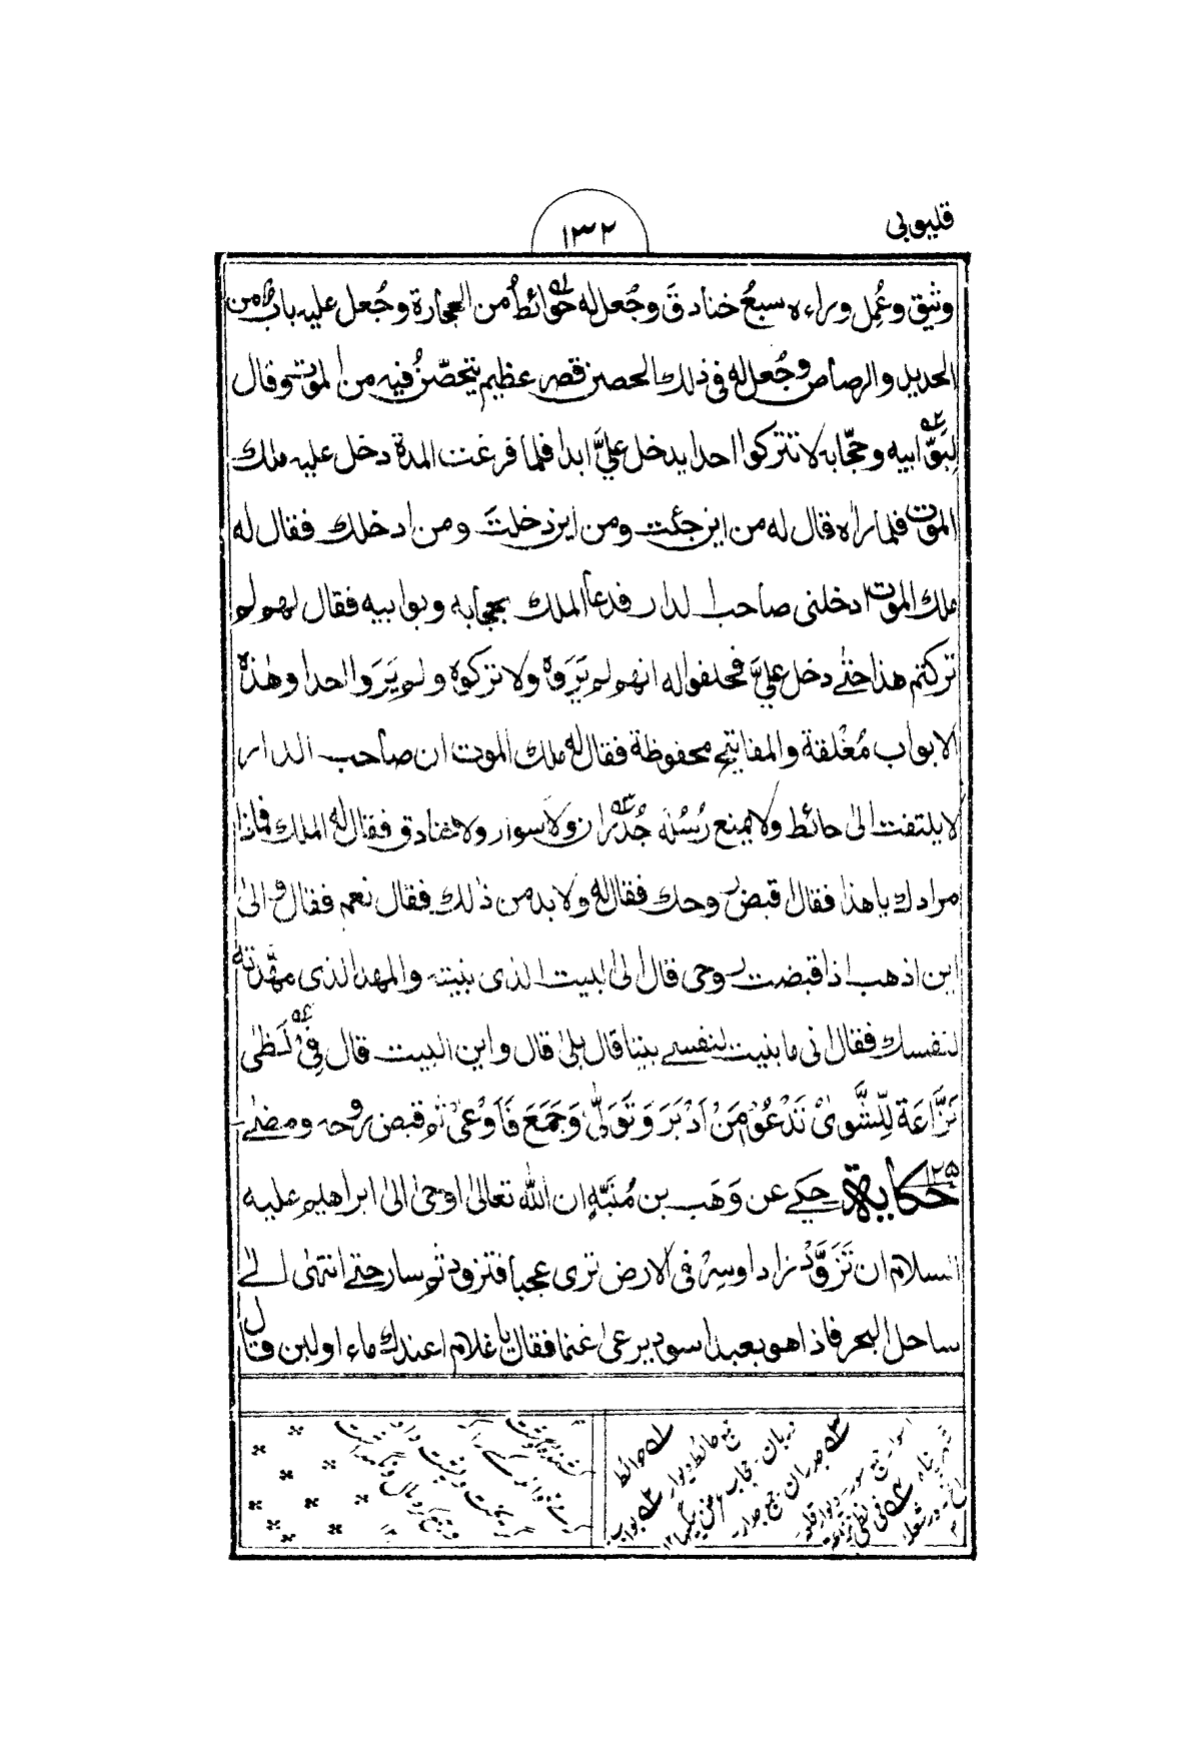 قليوبي
١٣٢
وثيق وعُمِل وراءه سبعُ خنادقَ وجُعل له حَوائطُ من الحجارة وجُعل عليه باب من
الحديد والرصاص وجُعل له فى ذلك الحصن قصر عظيم يتحصّنُ فيه من الموت وقال
لِبَوّابيه وحجّابه لا تتركوا احدا يدخل عليَّ ابدا فلما فرغت المدة دخل عليه ملك
الموت فلما راٰه قال له من اين جئت ومن اين دخلتَ ومن ادخلك فقال له
ملك الموت ادخلنى صاحب الدار فدعا الملك بحجابه وبوابيه فقال لهم لم
تركتم هذا حتى دخل عليَّ فحلفوا له انهم لم يَرَوهُ ولا تركوه ولم يَرَوا احدا وهٰذه
الابواب مُغْلقة والمفاتيح محفوظة فقال له ملك الموت ان صاحب الدار
لا يلتفت الى حائط ولا يمنع رُسُلَه جُدْران ولا سوار ولا خنادق فقال له الملك فماذا
مرادك يا هذا فقال اقبض روحك فقال له ولا بد من ذٰلك فقال نعم فقال والىٰ
اين اذهب اذا قبضت روحى قال الىٰ البيت الذى بنيته والمهد الذى مهّدته
لنفسك فقال انى ما بنيت لنفسى بيتا قال بلىٰ قال واين البيت قال فِىْ لَظٰى
نَزَّاعَة لِّلشَّوىٰ تَدْعُوْا مَنْ اَدْبَرَ وَتَوَلّٰى وَجَمَعَ فَاَوْعىٰ ثم قبض روحه ومضىٰ
حكاية ١٢٥ حكى عن وَهَب بن مُنَبَّهٍ ان اللّٰه تعالىٰ اوحىٰ الىٰ ابراهيم عليه
السلام ان تَزَوَّدْ زادا وسِرْ فى الارض ترى عجبا فتزود ثم سار حتى انتهىٰ الىٰ
ساحل البحر فاذا هو بعبد اسود يرعىٰ غنما فقال يا غلام اعندك ماء او لبن قال